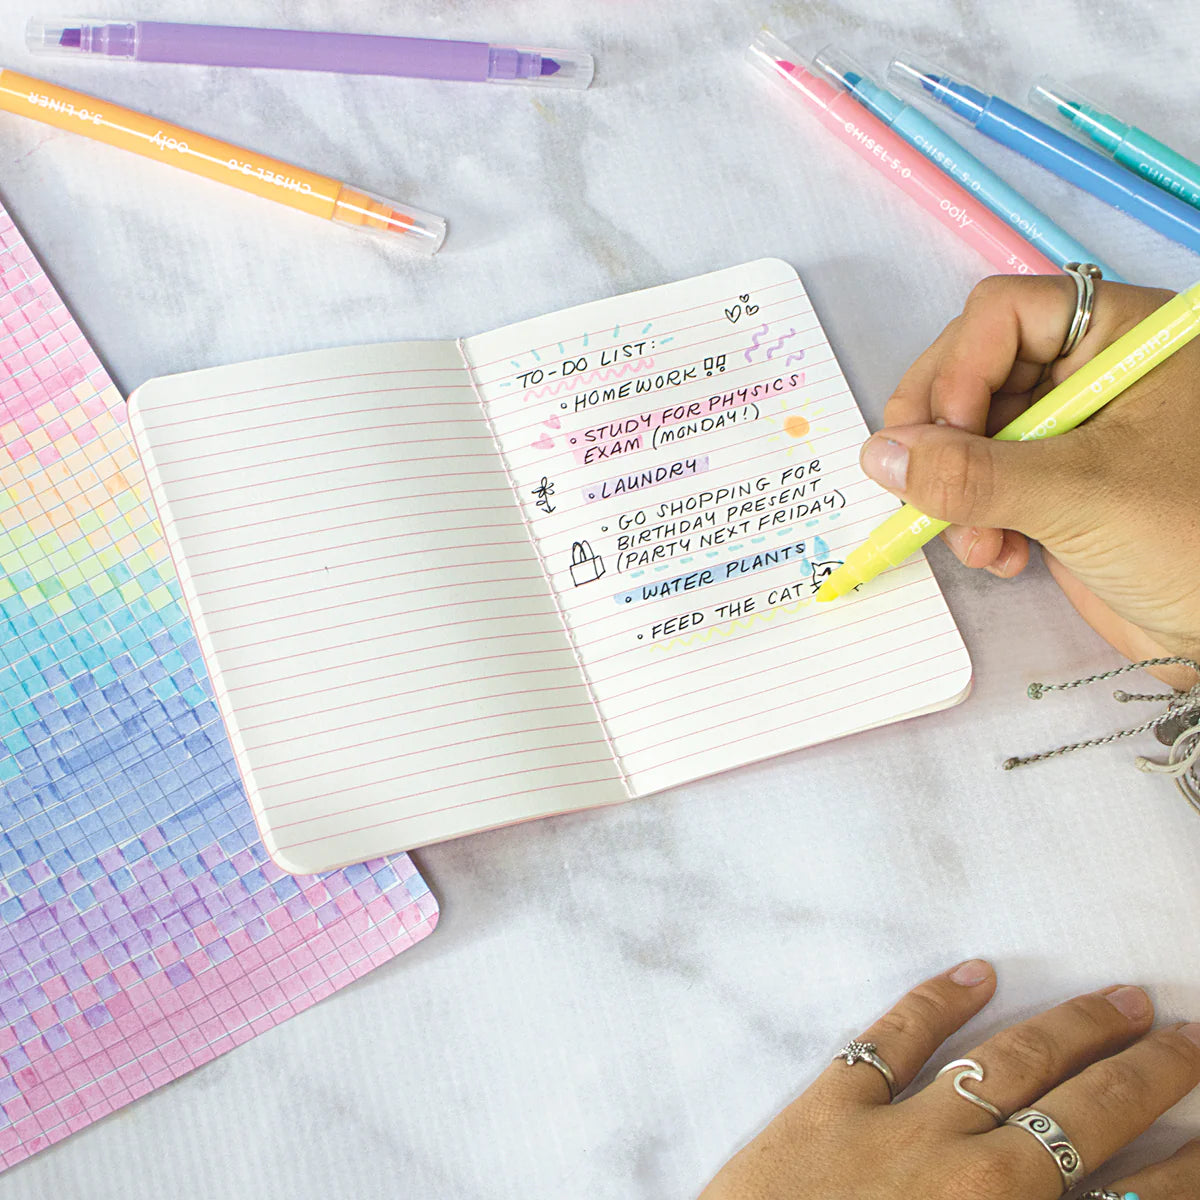 3.0 LINER ooly CHISEL 5.0
CHISEL 5.0 ooly 3.0
CHISEL 5.0 ooly
CHISEL 5
CHISEL 5.0
TO-DO LIST:
• HOMEWORK!!
• STUDY FOR PHYSICS
EXAM (MONDAY!)
• LAUNDRY
• GO SHOPPING FOR
BIRTHDAY PRESENT
(PARTY NEXT FRIDAY)
• WATER PLANTS
• FEED THE CAT